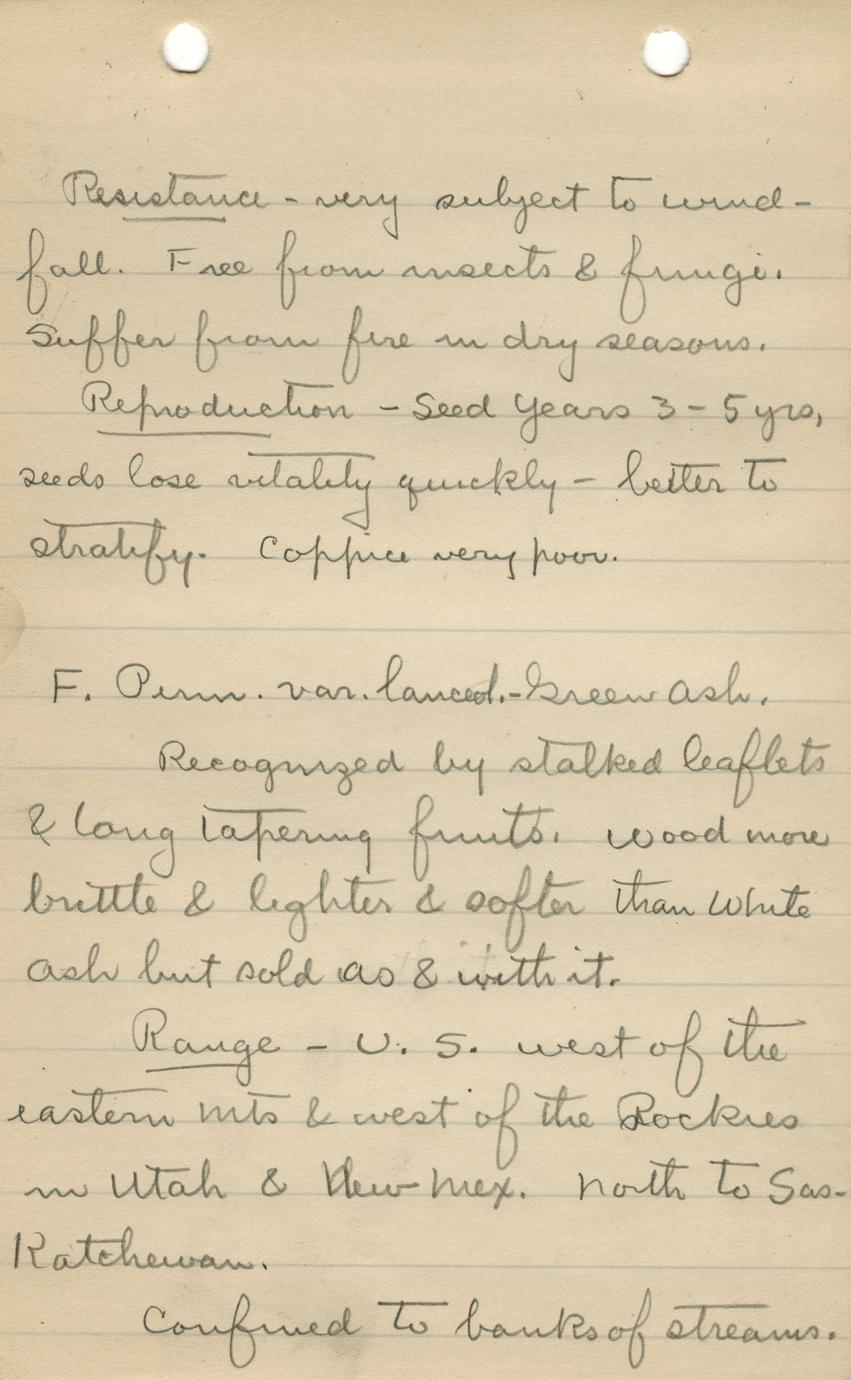 Resistance - very subject to wind-
fall. Free from insects & fungi.
Suffer from fire in dry seasons.
Reproduction - Seed Years 3-5 yrs,
seeds lose vitality quickly - better to
stratify. Coppice very poor.
F. Penn. var. lanceol. - Green Ash.
Recognized by stalked leaflets
& long tapering fruits. Wood more
brittle & lighter & softer than White
Ash but sold as & with it.
Range - U. S. west of the
eastern mts & west of the Rockies
in Utah & New Mex. North to Sas-
Katchewan.
Confined to banks of streams.